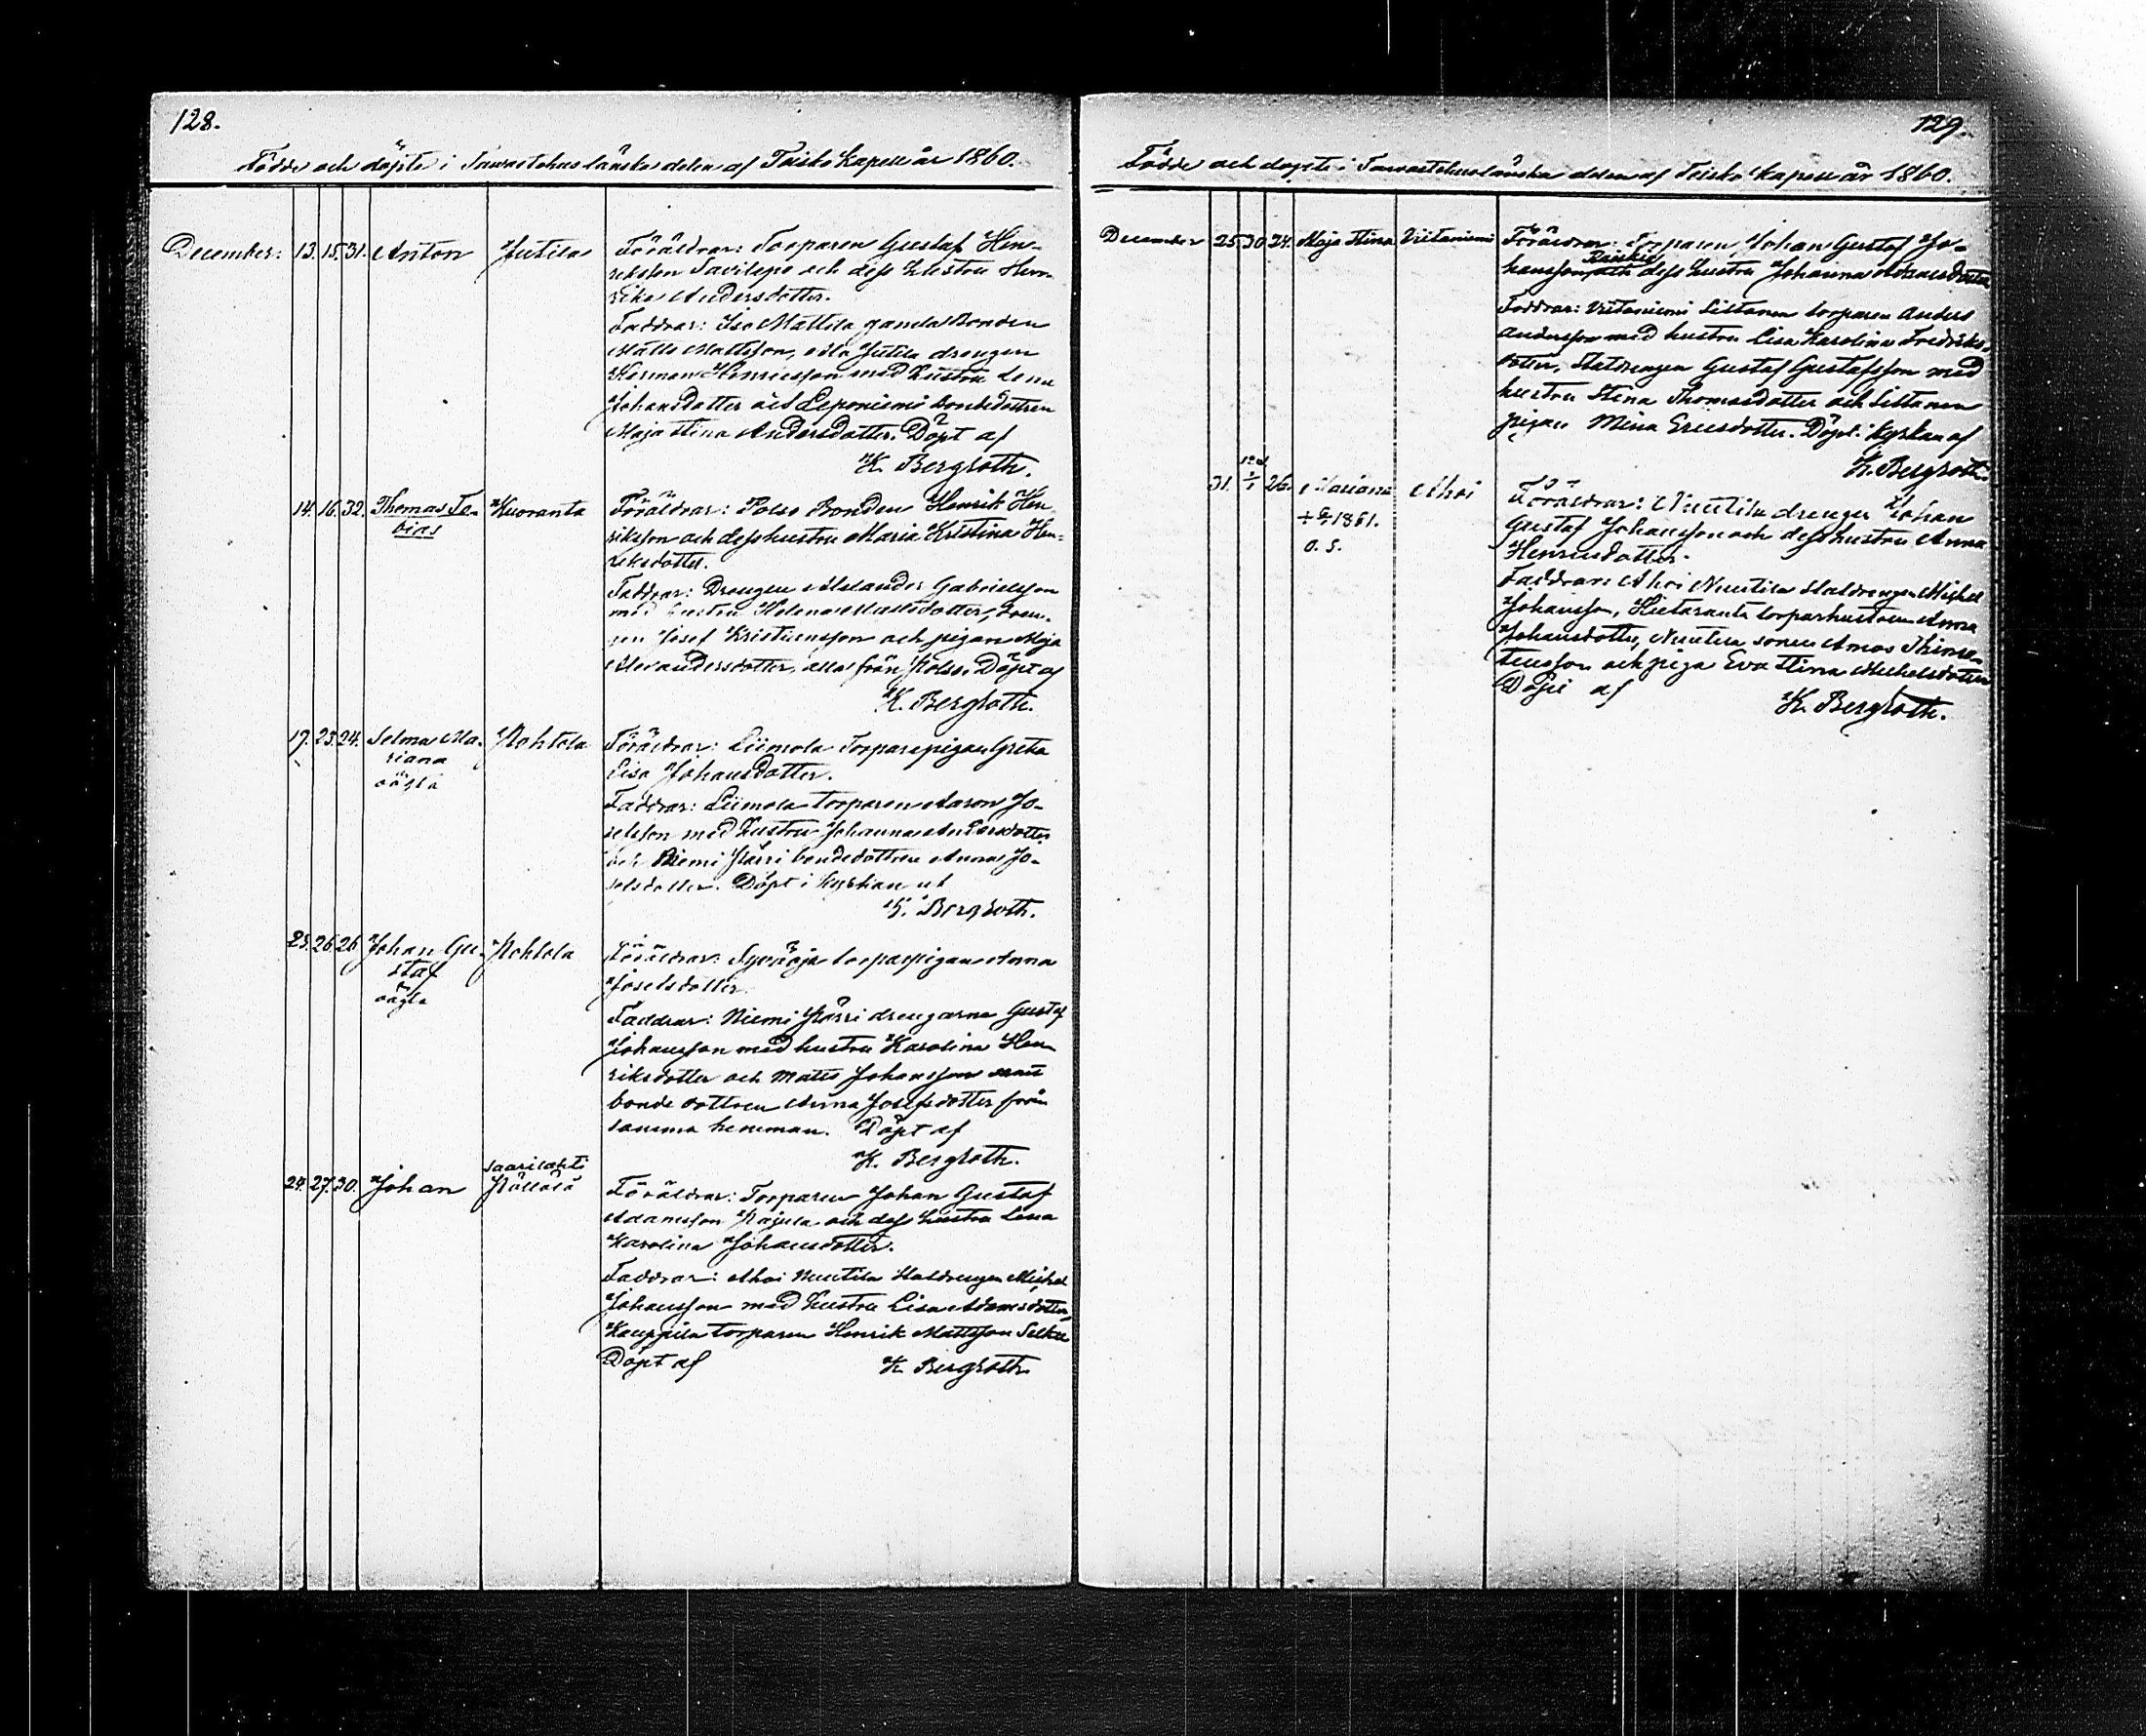 128.
Födde och döpte i Tawastehus länska delen af Teisko Kapell år 1860.
December: 13. 15. 31. Anton Jutila Föräldrar: Torparen Gustaf Hen-
riksson Savilepo och dess hustru Hen-
rika Andersdotter.
Faddrar: Iso Mattila gamla Bonden
Matts Mattsson, Ala Jutila drengen
Herman Henricsson med hustru Lena
Johansdotter och Leponiemi bondedottren
Maja Stina Andersdotter. Döpt af
K. Bergroth.
14. 16. 32. Thomas To- Kuoranta Föräldrar: Polso Bonden Henrik Hen-
bias riksson och dess hustru Maria Kristina Hen-
riksdotter.
Faddrar: Drengen Alexander Gabrielsson
med hustru Helena Mattsdotter, dren-
gen Josef Kristiansson och pigan Maja
Alexandersdotter, alla från Polso. Döpt af
K. Bergroth.
17. 23. 24. Selma Ma- Pohtola Föräldrar: Liimola Torparepigan Greta
riana Lisa Johansdotter.
oägta
Faddrar: Liimola torparen Aaron Jo-
sefsson med hustru Johanna Andersdotter
och Niemi Pärri bondedottren Anna Jo-
sefsdotter. Döpt i kyrkan af
K. Bergroth.
23. 26. 26. Johan Gu- Pohtola Föräldrar: torparpigan Anna
staf Josefsdotter.
oägta
Faddrar: Niemi Pärri drengarne Gustaf
Johansson med hustru Karolina Hen-
riksdotter och Matts Johansson samt
bonde dottren Anna Josefsdotter från
samma hemman. Döpt af
K. Bergroth.
24. 27. 30. Johan Saarilahti Föräldrar: Torparen Johan Gustaf
Pällölä
Adamsson Pajula och dess hustru Lena
Karolina Johansdotter.
Faddrar: Ahoi Nuutila Statdrengen Michel
Johansson med hustru Lisa Adamsdotter,
Kauppila torparen Henrik Mattsson
Döpt af K. Bergroth
129.
Födde och döpte i Tawastehus länska delen af Teisko Kapell år 1860.
December 25. 30. 24. Maja Stina Viitaniemi Föräldrar: Torparen Johan Gustaf Jo-
hansson och dess hustru Johanna Adamsdotter
Faddrar: Viitaniemi Siltanen torparen Anders
Andersson med hustru Lisa Karolina Fredriks-
dotter, Statdrengen Gustaf Gustafsson med
hustru Stina Thomasdotter och Siltanen
pigan Mina Ericsdotter. Döpt i kyrkan af
K. Bergroth.
31. 1/1 26. Mariana Ahoi Föräldrar: Nuutila drengen Johan
1861.
o. s.
Gustaf Johansson och dess hustru Anna
Henricsdotter.
Faddrar: Ahoi Nuutila Statdrengen Michel
Johansson, Hietaranta torparhustrun Anna
Johansdotter, Nuutila sonen Amos Thimo-
teusson och piga Eva Stina Michelsdotter
Döpt af K. Bergroth.